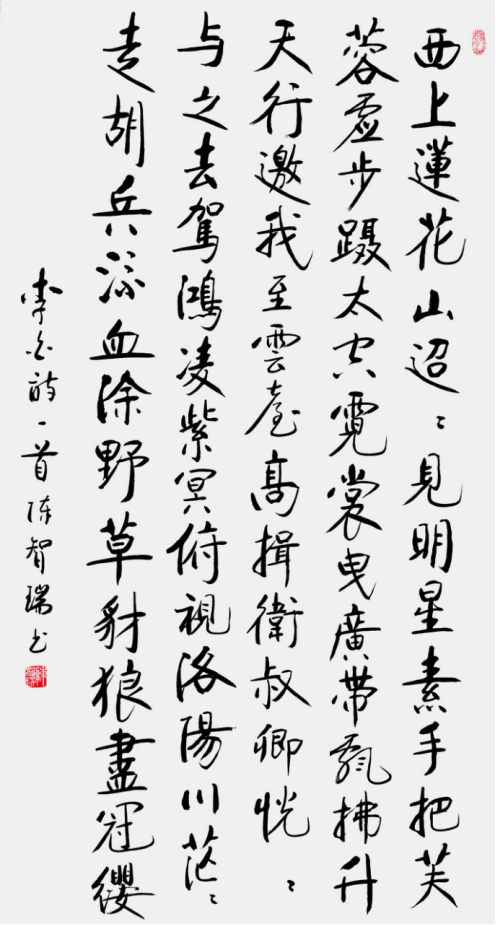 西上蓮花山迢〻見明星素手把芙
蓉虛步蹑太空霓裳曳廣帶飄拂升
天行邀我至雲臺高揖衛叔卿恍〻
与之去駕鴻凌紫冥俯視洛陽川茫〻
走胡兵流血涂野草豺狼盡冠纓
李白詩一首陈智瑞书